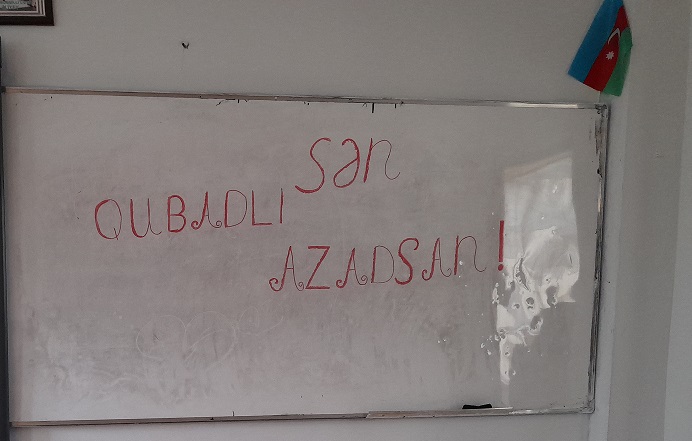 QUBADLI SƏN
AZADSAN!